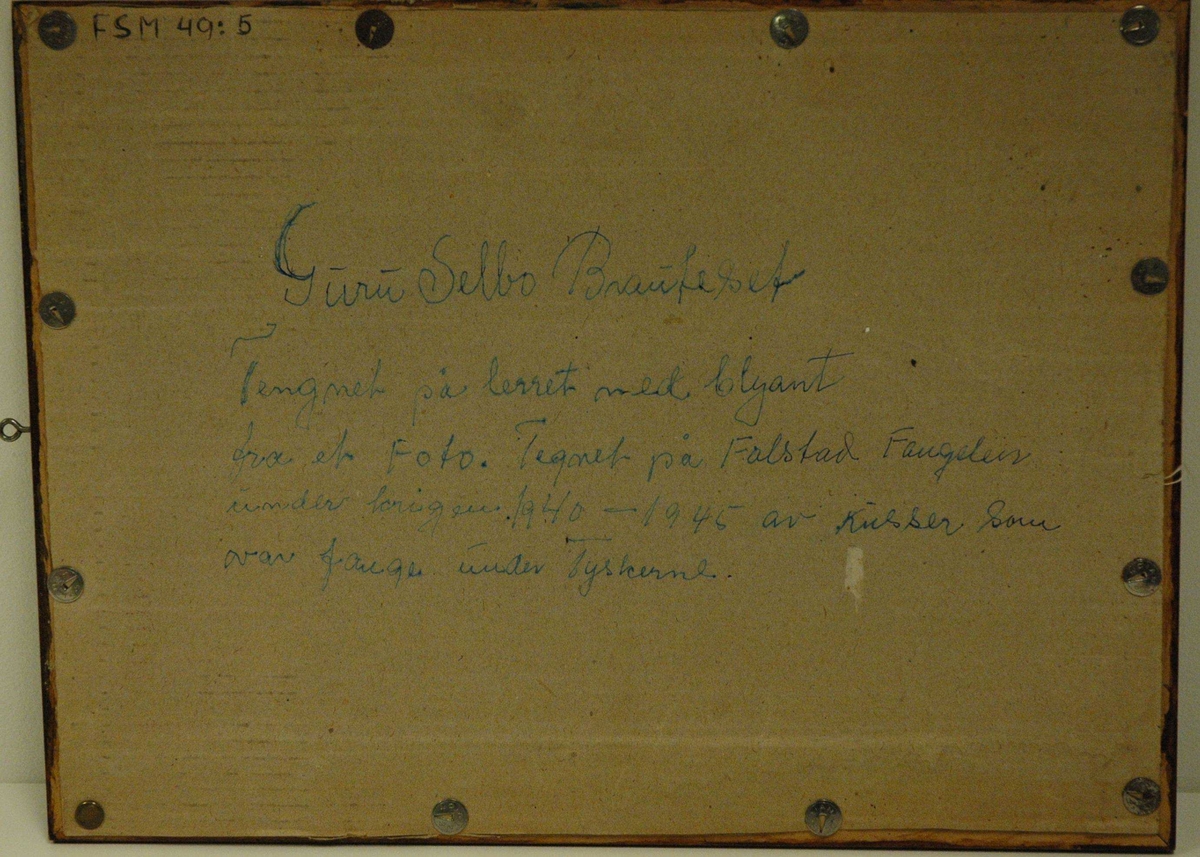 FSM 49:5
Guru Selbo Brauteset
Tengnet på lerret med blyant
fra et Foto. Tegnet på Falstad Fangeleir
under krigen 1940 – 1945 av Russer som
var fange under Tyskerne.